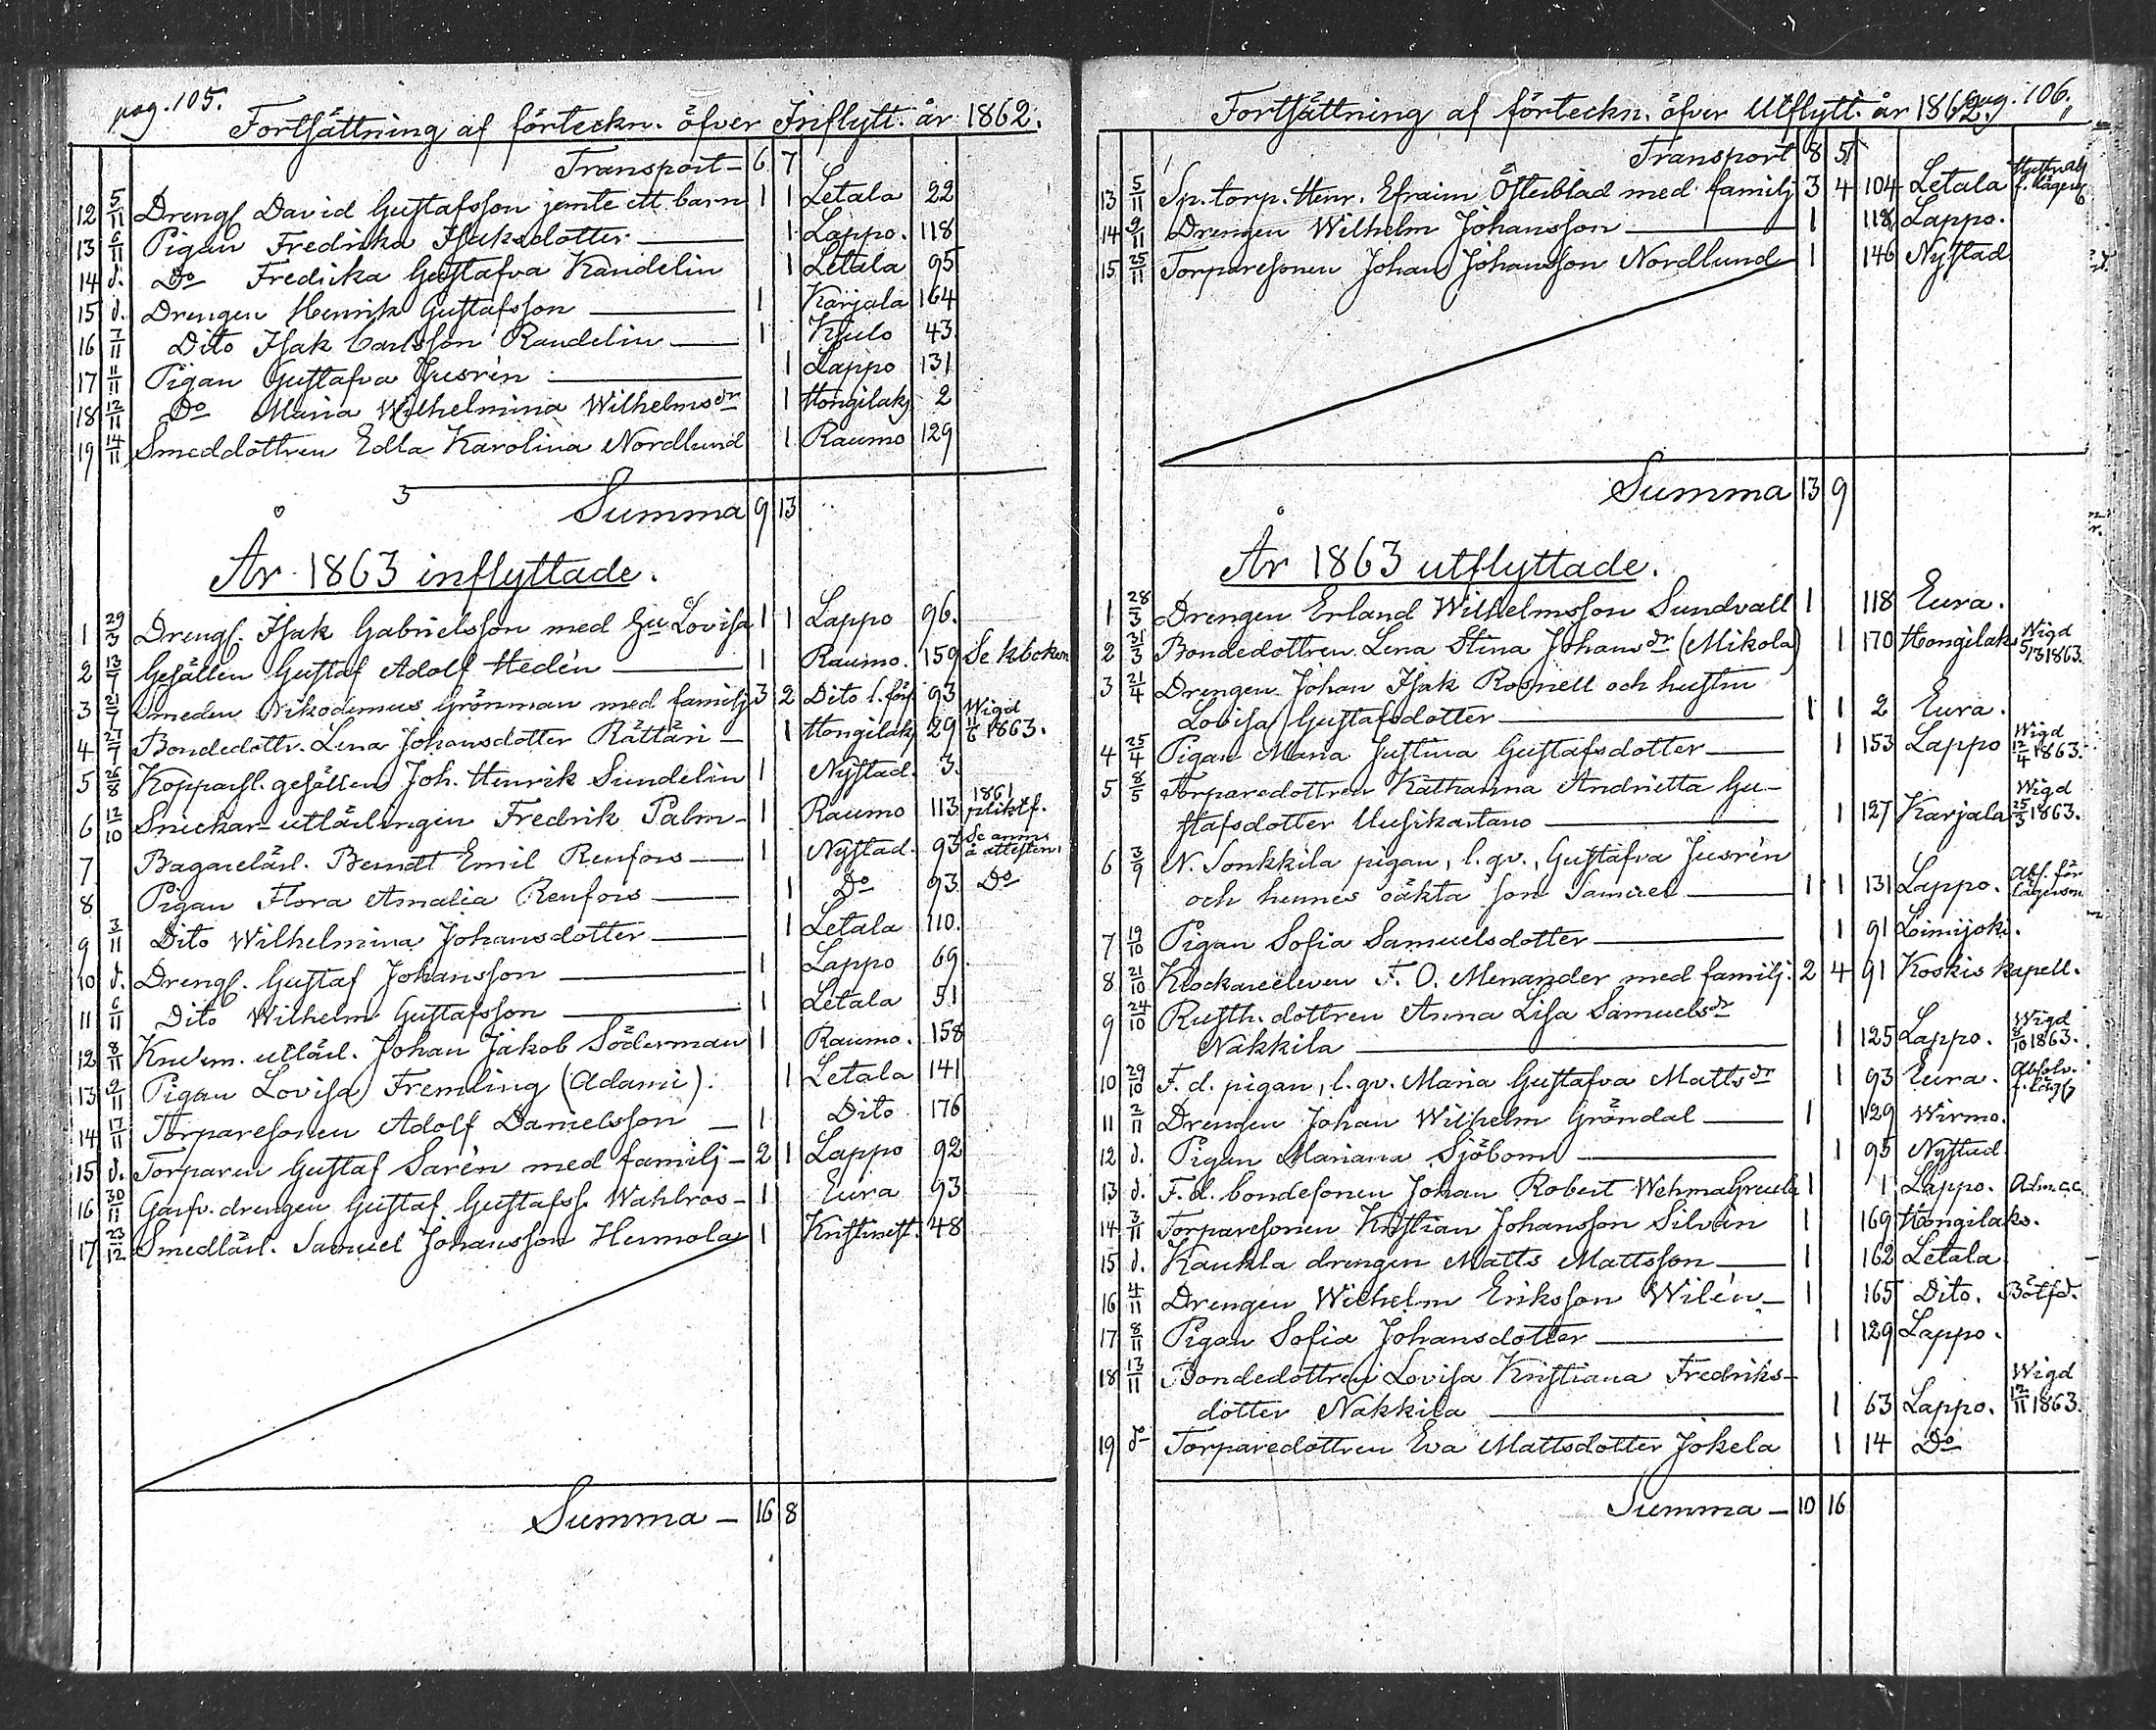 pag. 105.
Fortsättning af förteckn. öfver Inflytt. år 1862.
Transport — 6 7
12 5/11 Drengs. David Gustafsson jemte ett barn 1 1 Letala 22
13 6/11 Pigan Fredrika Isaksdotter — 1 Lappo. 118
14 d. Do Fredrika Gustafva Kandelin 1 Letala 95
15 d. Drengen Henrik Gustafsson — 1 Karjala 164
16 7/11 Dito Isak Carlsson Randelin — 1 Kjulo 43
17 11/11 Pigan Gustafva Jusrén — 1 Lappo 131
18 12/11 Do Maria Wilhelmina Wilhelmsdr 1 Hongilaks 2
19 14/11 Smeddottren Edla Karolina Nordlund 1 Raumo 129
3
Summa 9 13
År 1863 inflyttade.
1 29/3 Drengs. Isak Gabrielsson med hu Lovisa 1 1 Lappo 96.
2 13/7 Gesällen Gustaf Adolf Hedén — 1 Raumo. 159 Se kboken
3 21/7 Smeden Nikodemus Grönman med familj 3 2 Dito l. förs. 93
4 27/7 Bondedottr. Lena Johansdotter Rättäri — 1 Hongilaks 29 Wigd 11/6 1863.
5 26/8 Kopparsl. gesällen Joh. Henrik Sundelin 1 Nystad. 3.
6 12/10 Snickar-utlärlingen Fredrik Palm — 1 Raumo 113 1861 pliktf.
7 Bagarelärl. Berndt Emil Renfors — 1 Nystad. 93 Se anm. å attesten.
8 Pigan Flora Amalia Renfors — 1 Do 93 Do
9 3/11 Dito Wilhelmina Johansdotter — 1 Letala 110.
10 d. Drengs. Gustaf Johansson — 1 Lappo 69.
11 6/11 Dito Wilhelm Gustafsson — 1 Letala 51
12 8/11 utlärl. Johan Jakob Söderman 1 Raumo. 158
13 9/11 Pigan Lovisa Fremling (Adami). 1 Letala 141
14 17/11 Torparesonen Adolf Danielsson — 1 Dito 176
15 d. Torparen Gustaf Sarén med familj — 2 1 Lappo 92
16 30/11 Garfv. drengen Gustaf Gustafss. Wahlros — 1 Eura 93
17 23/12 Smedlärl. Samuel Johansson Hermola 1 Kristinest. 48
Summa — 16 8
pag. 106.
Fortsättning af förteckn. öfver Utflytt. år 1862.
Transport 8 5
13 5/11 Sp. torp. Henr. Efraim Österblad med familj 3 4 104 Letala
14 9/11 Drengen Wilhelm Johansson — 1 118 Lappo.
15 25/11 Torparesonen Johan Johansson Nordlund 1 146 Nystad
Summa 13 9
År 1863 utflyttade.
1 28/3 Drengen Erland Wilhelmsson Sundvall 1 118 Eura.
2 31/3 Bondedottren Lena Stina Johansdr (Mikola) 1 170 Hongilaks Wigd 5/3 1863.
3 21/4 Drengen Johan Isak Rosnell och hustru
Lovisa Gustafsdotter — 1 1 2 Eura.
4 25/4 Pigan Maria Justina Gustafsdotter — 1 153 Lappo Wigd 12/4 1863.
5 8/5 Torparedottren Katharina Andrietta Gu-
stafsdotter Uusikartano — 1 127 Karjala Wigd 25/3 1863.
6 3/9 N. Sonkkila pigan, l. qv., Gustafva Jusrén
och hennes oäkta son Samuel — 1 1 131 Lappo. Abs. för lägersm.
7 19/10 Pigan Sofia Samuelsdotter — 1 91 Loimijoki.
8 21/10 Klockareeleven F. O. Menander med familj. 2 4 91 Koskis kapell.
9 24/10 Rusth. dottren Anna Lisa Samuelsdr
Nakkila — 1 125 Lappo. Wigd 8/10 1863.
10 29/10 F. d. pigan, l. qv. Maria Gustafva Mattsdr 1 93 Eura. Absolv. f. lägsm
11 2/11 Drengen Johan Wilhelm Gröndal — 1 129 Wirmo.
12 d. Pigan Mariana Sjöbom — 1 95 Nystad.
13 d. F. d. bondesonen Johan Robert Wehmagreula 1 1 Lappo. Adm. c.c.
14 3/11 Torparesonen Kristian Johansson Silvén 1 169 Hongilaks.
15 d. Kaukla drengen Matts Mattsson — 1 162 Letala
16 4/11 Drengen Wilhelm Eriksson Wilén — 1 165 Dito. Bötfd.
17 8/11 Pigan Sofia Johansdotter — 1 129 Lappo.
18 13/11 Bondedottren Lovisa Kristiana Fredriks-
dotter Nakkila — 1 63 Lappo. Wigd 12/11 1863.
19 d Torparedottren Eva Mattsdotter Jokela 1 14 Do
Summa — 10 16